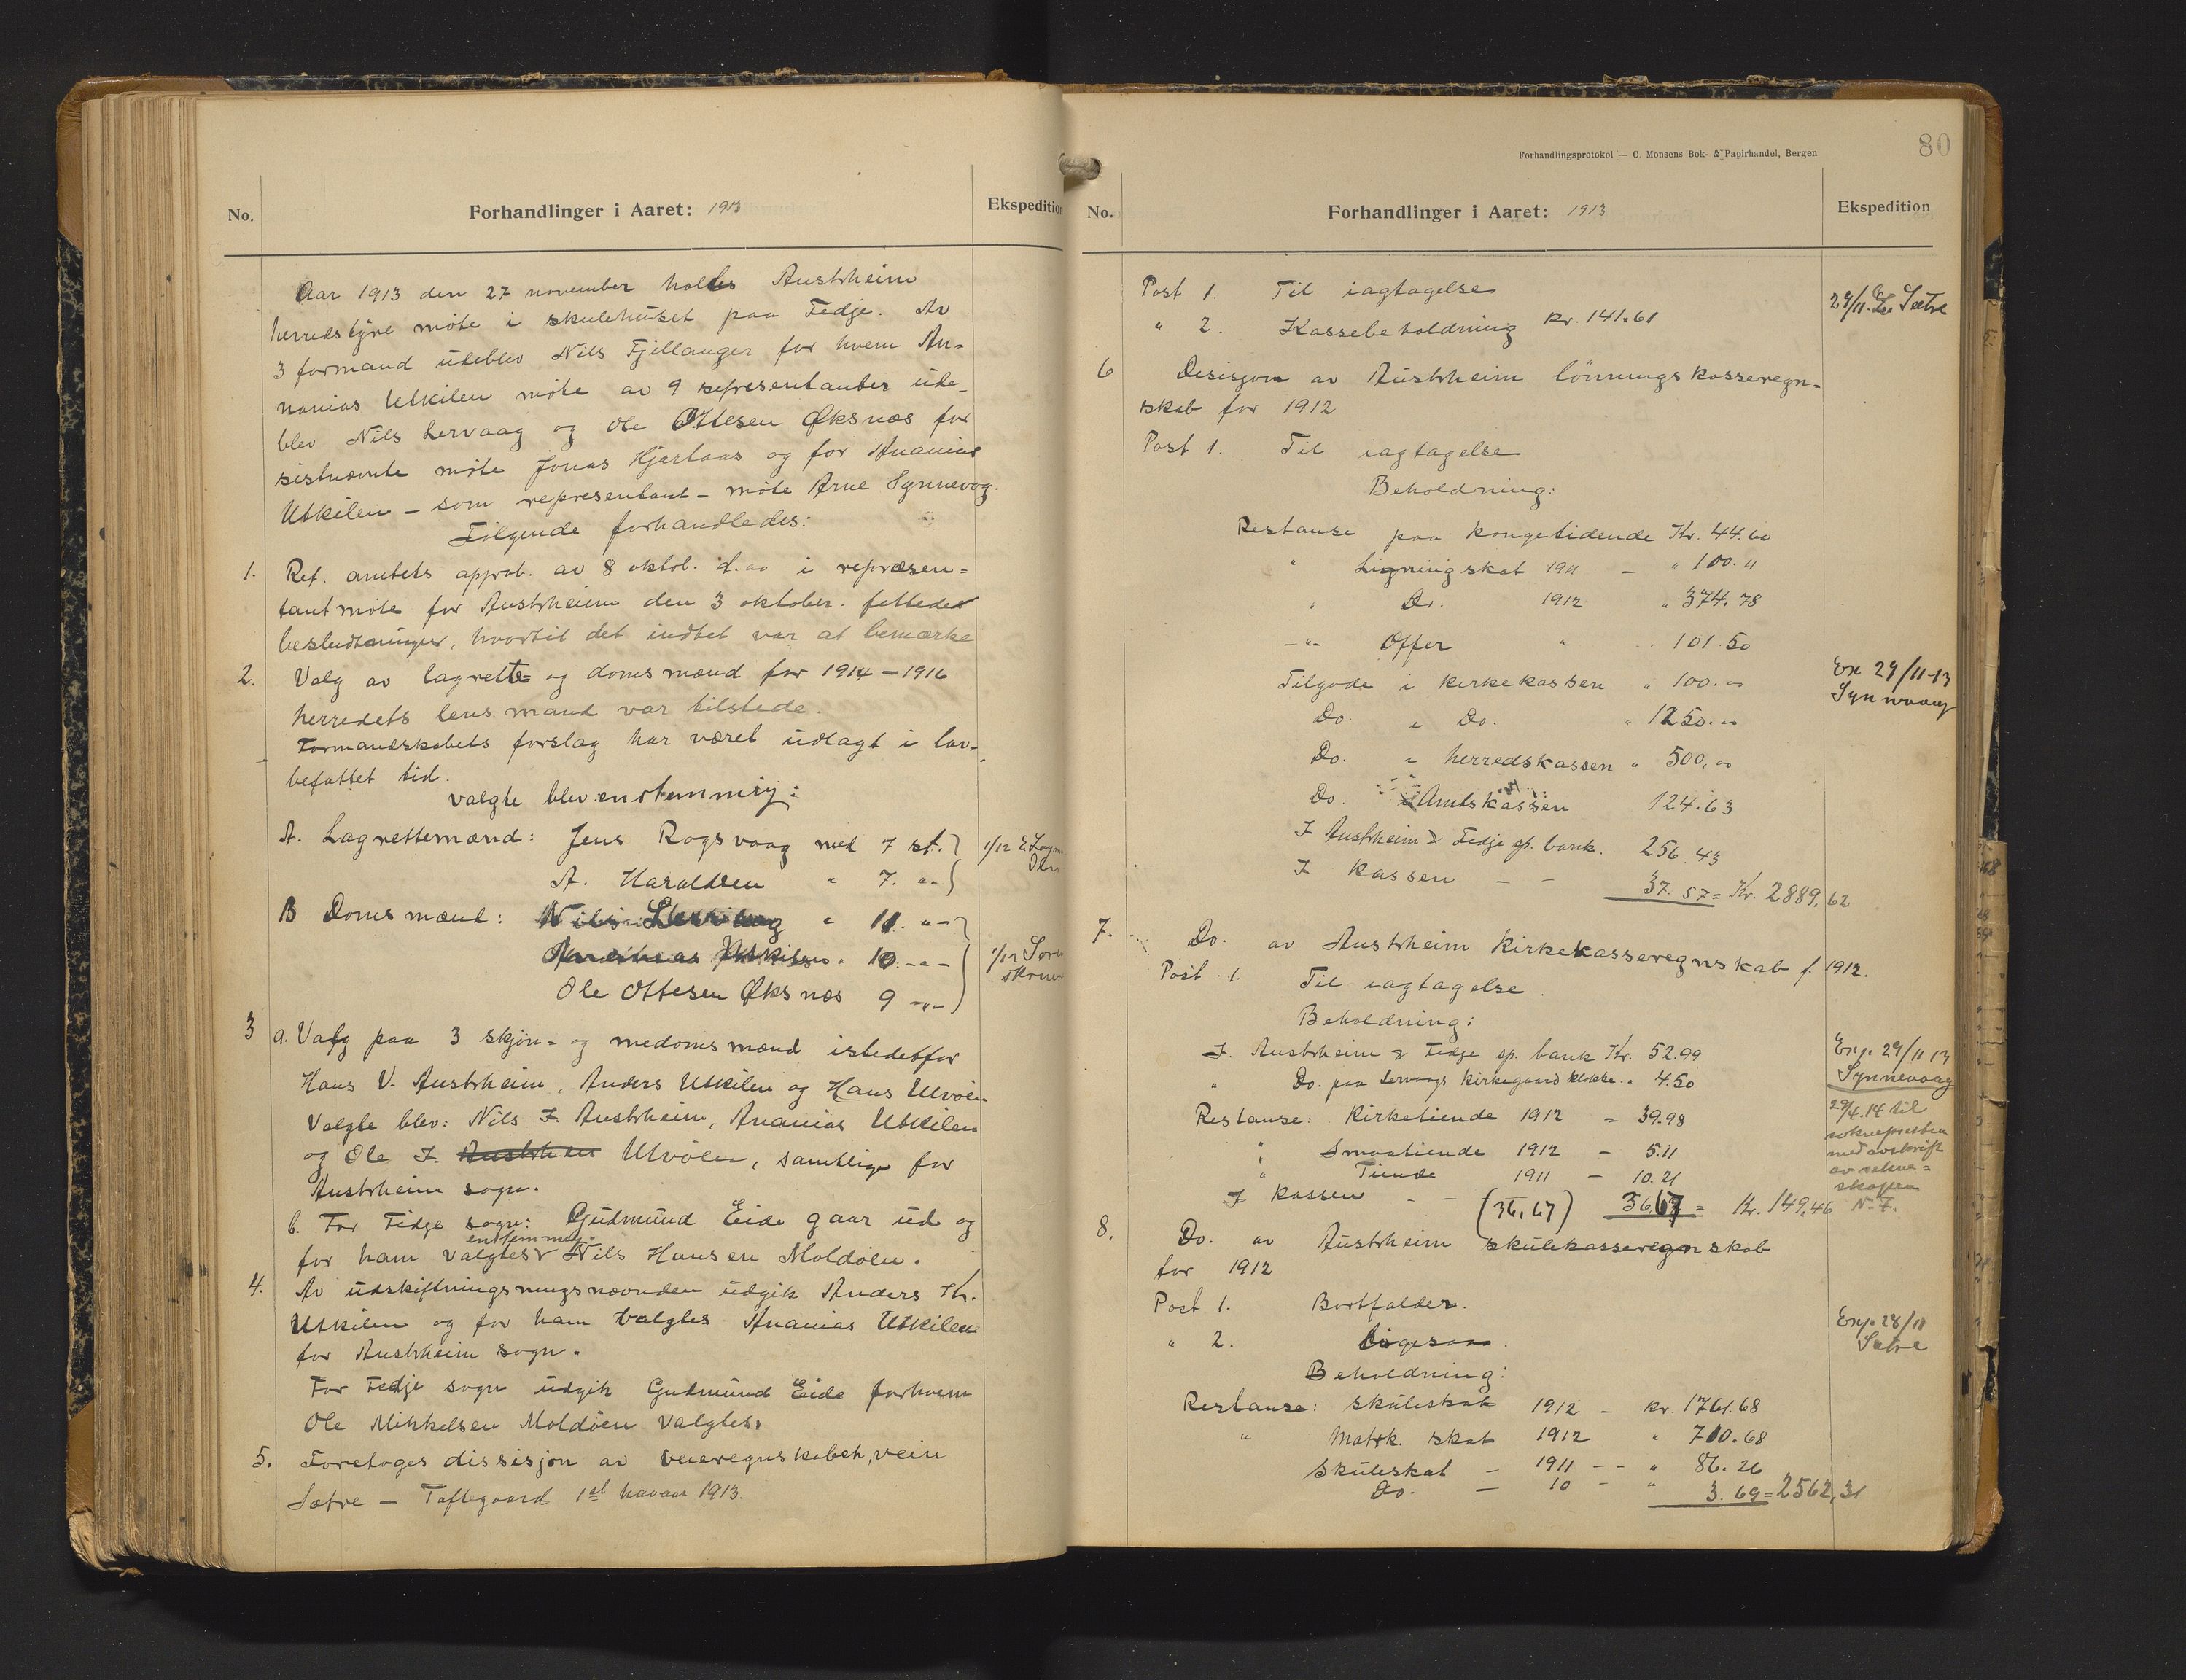 No.
Forhandlinger i Aaret: 1913
Ekspedition
Aar 1913 den 27 november holdes Austrheim
herredstyre møte i skulehuset paa Fedje. Av
3 formænd udeblev Nils Fjellanger for hvem An-
nanias Utkilen møte av 9 representanter ude-
blev Nils Lervaag og Ole Ottesen Øksnæs for
sistnævnte møte Jonas Hjartaas og for Ananias
Utkilen – som representant – møte Arne Synnevog.
Følgende forhandledes:
1. Ref. amtets approb. av 8 oktob. d. aa i repræsen-
tantmøte for Austrheim den 3 oktober fattede
besludtninger, hvortil det indtet var at bemærke
2. Valg av lagrette- og domsmænd for 1914–1916
herredets lensmand var tilstede.
Formandskabets forslag har været udlagt i lov-
befattet tid.
valgte blev enstemmig:
A. Lagrettemænd: Jens Rogsvaag med 7 st.
A. Haraldsen " 7. "-
1/12
B Domsmænd: Nils Lervaag " 11. "-
Ananias Utkilen " 10. -"-
Ole Ottesen Øksnæs 9 -"-
1/12
3 a. Valg paa 3 skjøn- og medomsmænd istedetfor
Hans V. Austrheim, Anders Utkilen og Hans Ulvøen
Valgte blev: Nils J. Austrheim, Ananias Utkilen
og Ole J. Austrheim Ulvøen, samtlige for
Austrheim sogn.
b. For Fedje sogn: Gudmund Eide gaar ud og
enstemmig
for ham valgtes Nils Hansen Moldøen.
4. Av udskiftningsningsnævnden udgik Anders Kr.
Utkilen og for ham valgtes Ananias Utkilen
for Austrheim sogn.
For Fedje sogn udgik Gudmund Eide forhvem
Ole Mikkelsen Moldøen valgtes.
5. Foretoges dissisjon av veieregnskabet, vein
Sætre – Toftegaard 1st havaar 1913.
80
Forhandlingsprotokol — C. Monsens Bok- & Papirhandel, Bergen
No.
Forhandlinger i Aaret: 1913
Ekspedition
Post 1. Til iagtagelse
29/11 Sætre
" 2. Kassebeholdning kr. 141.61
6 Desisjon av Austrheim lönningskasseregn-
skab for 1912
Post 1. Til iagtagelse
Beholdning:
Restanse paa kongetidende Kr. 44.60
" Ligningskat 1911 – " 100. "
" Do. 1912 " 374.78
-"- Offer " 101.50
Tilgode i kirkekassen " 100.00
Ex 29/11-13
Synnevaag
Do i Do. " 1250.00
Do. i herredskassen " 500,00
Do. i Amtskassen 124.63
I Austrheim & Fedje sp. bank. 256.43
I kassen – – 37.57 = Kr. 2889,62
7. Do. av Austrheim kirkekasseregnskab f. 1912.
Post 1. Til iagtagelse.
Beholdning:
I. Austrheim & Fedje sp. bank Kr. 52.99
" Do. paa Lervaags kirkegaard klokke. " 4.50
Exp. 29/11 13
Synnevaag
Restanse: Kirketiende 1912 – 39.98
" Smaatiende 1912 – 5.11
" Tiende 1911 – 10.21
29/4.14 til
sokneprestten
med avskrift
av rekne-
skapen
N. F.
I kassen – – (36,67) 36.67 = Kr. 149,46
8. Do. av Austrheim skulekasseregnskab
for 1912
Post 1. Bortfalder.
" 2. Ligesaa.
Exp. 28/11
Sætre
Beholdning:
Restanse: Skuleskat 1912 – kr. 1761.68
" Matrk. skat 1912 " 710.68
Skuleskat – 1911 – – " 86.26
Do. – 10 – " 3.69 = 2562,31